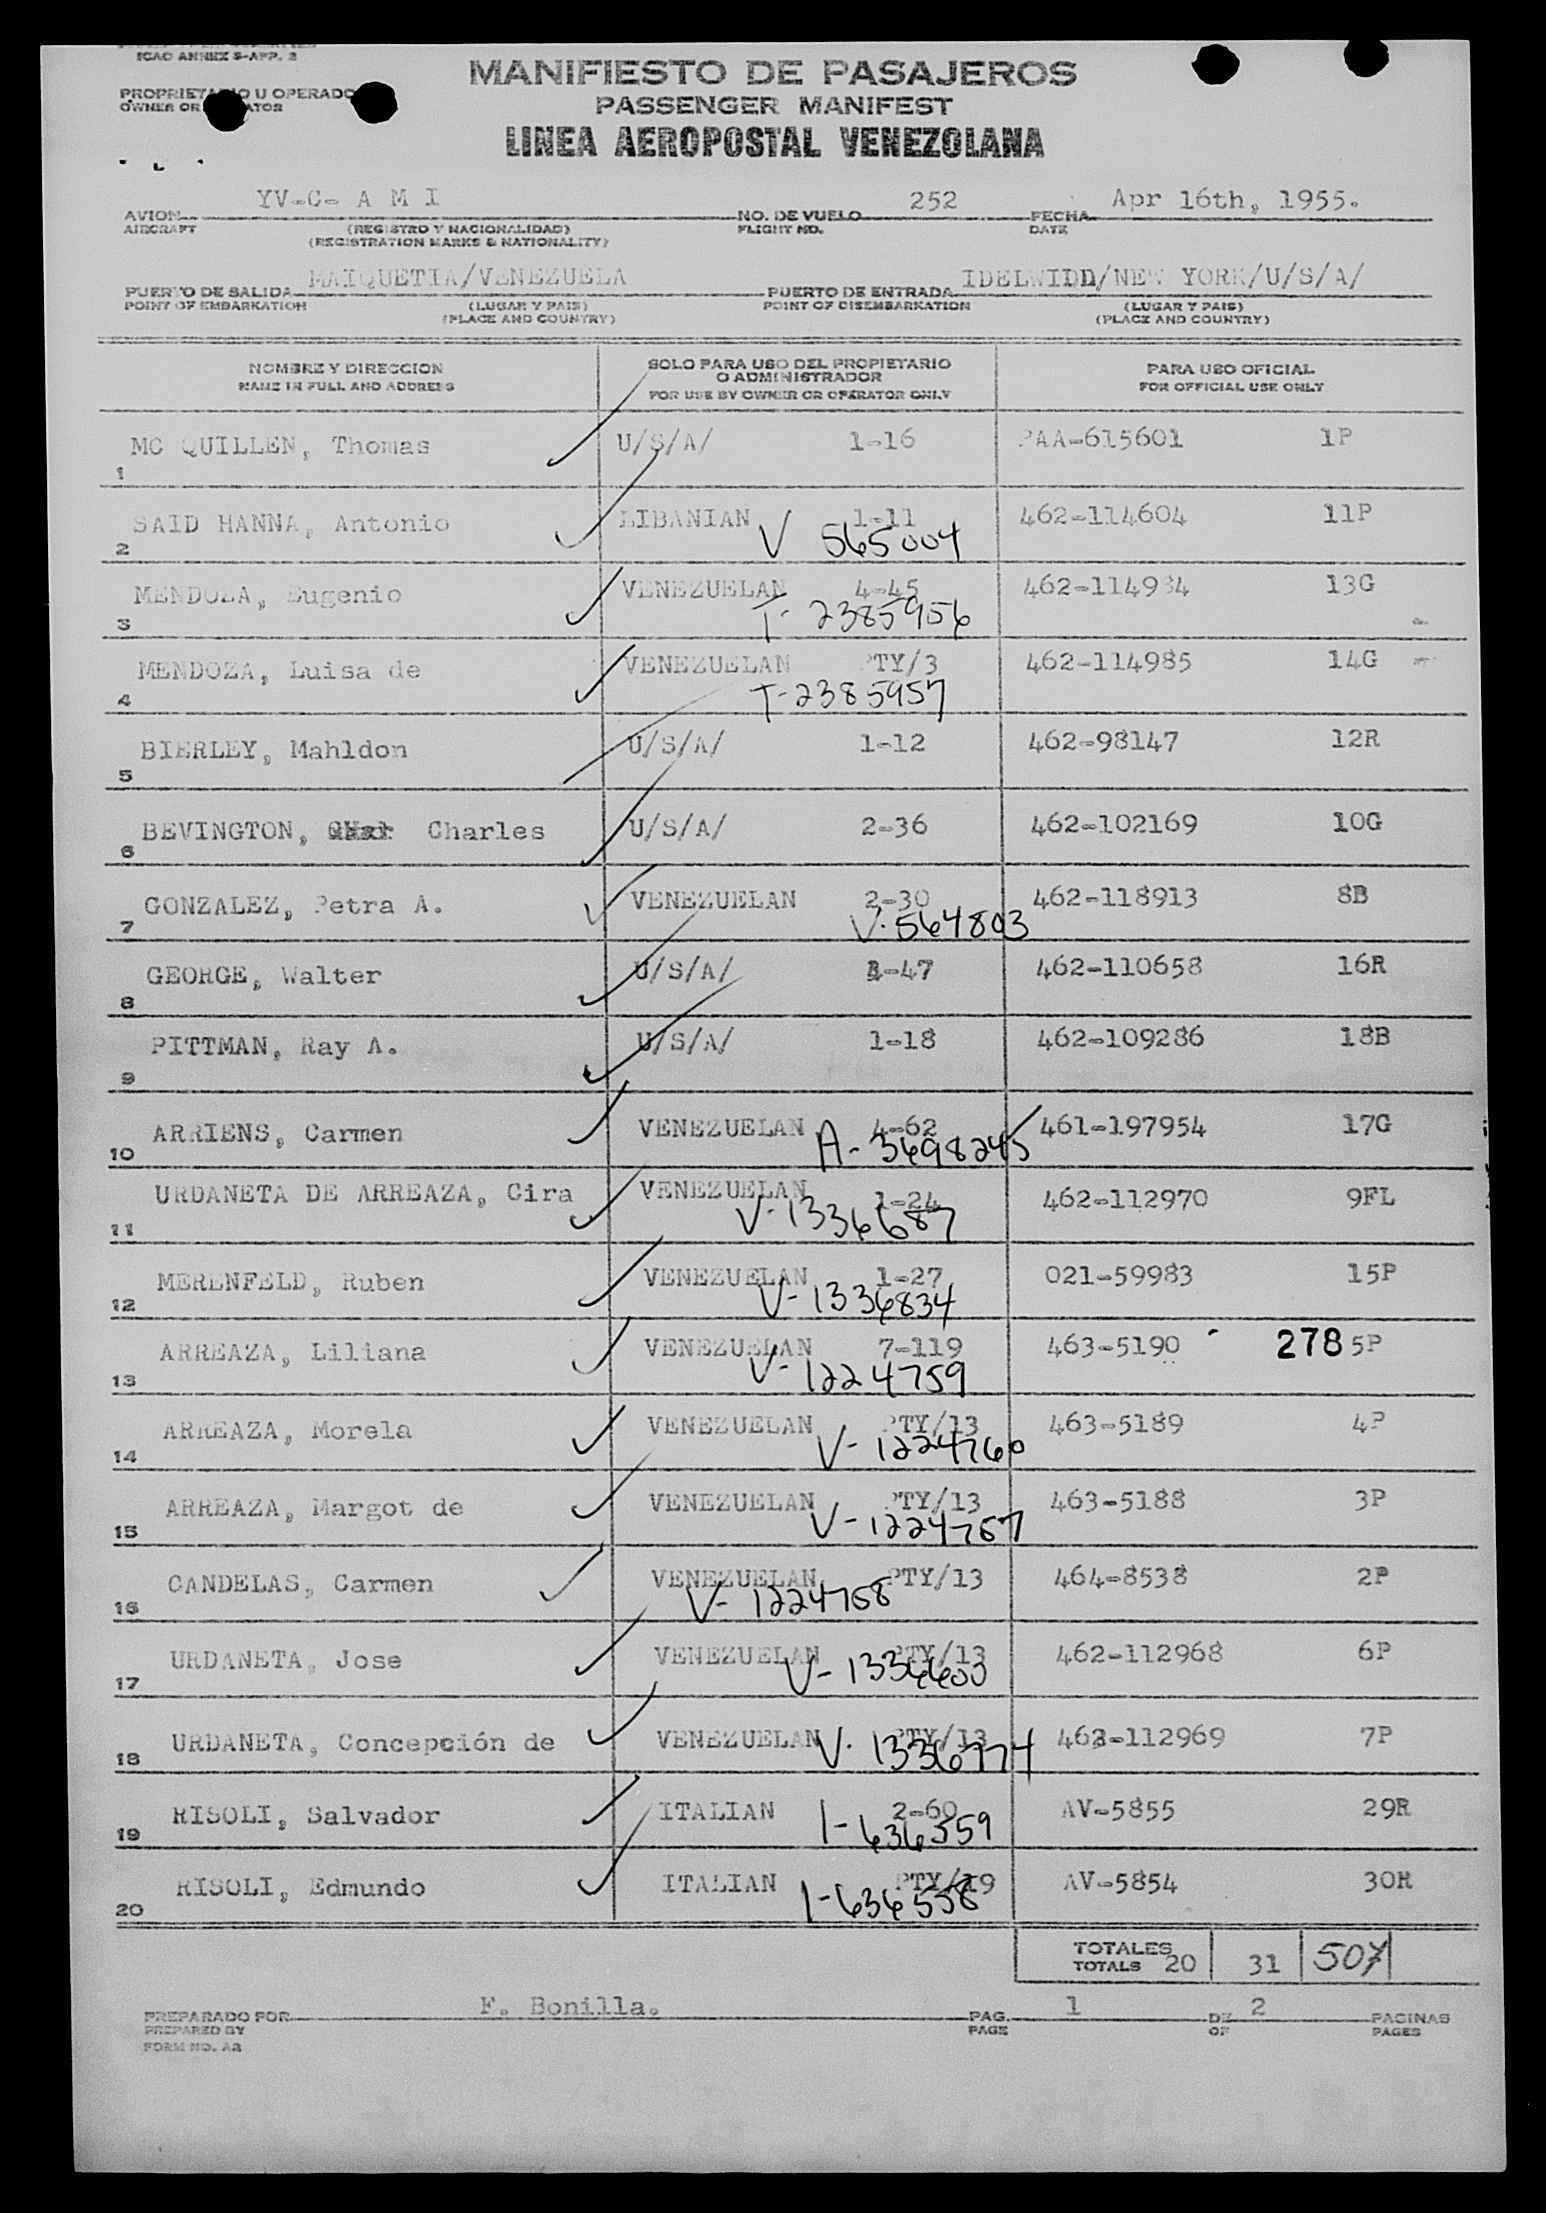 ICAO ANNEX 9-APP. 3
MANIFIESTO DE PASAJEROS
PASSENGER MANIFEST
LINEA AEROPOSTAL VENEZOLANA
YV-C- A M I 252 Apr 16th, 1955.
AVION NO. DE VUELO FECHA
AIRCRAFT (REGISTRO Y NACIONALIDAD) FLIGHT NO. DATE
(REGISTRATION MARKS & NATIONALITY)
MAIQUETIA/VENEZUELA IDELWIDD/NEW YORK/U/S/A/
PUERTO DE SALIDA PUERTO DE ENTRADA
POINT OF EMBARKATION (LUGAR Y PAIS) POINT OF DISEMBARKATION (LUGAR Y PAIS)
(PLACE AND COUNTRY) (PLACE AND COUNTRY)
NOMBRE Y DIRECCION SOLO PARA USO DEL PROPIETARIO PARA USO OFICIAL
NAME IN FULL AND ADDRESS O ADMINISTRADOR FOR OFFICIAL USE ONLY
FOR USE BY OWNER OR OPERATOR ONLY
MC QUILLEN, Thomas U/S/A/ 1-16 PAA-615601 1P
1
SAID HANNA, Antonio LIBANIAN 1-11 462-114604 11P
2 V 565004
MENDOZA, Eugenio VENEZUELAN 4-45 462-114984 13G
3 T- 2385956
MENDOZA, Luisa de VENEZUELAN PTY/3 462-114985 14G
4 T-2385957
BIERLEY, Mahldon U/S/A/ 1-12 462-98147 12R
5
BEVINGTON, Charles U/S/A/ 2-36 462-102169 10G
6
GONZALEZ, Petra A. VENEZUELAN 2-30 462-118913 8B
7 V. 564803
GEORGE, Walter U/S/A/ -47 462-110658 16R
8
PITTMAN, Ray A. U/S/A/ 1-18 462-109286 18B
9
ARRIENS, Carmen VENEZUELAN 4-62 461-197954 17G
10 A- 3698245
URDANETA DE ARREAZA, Cira VENEZUELAN 1-24 462-112970 9FL
11 V-1336687
MERENFELD, Ruben VENEZUELAN 1-27 021-59983 15P
12 V-1336834
ARREAZA, Liliana VENEZUELAN 7-119 463-5190 278 5P
13 V-1224759
ARREAZA, Morela VENEZUELAN PTY/13 463-5189 4P
14 V-1224760
ARREAZA, Margot de VENEZUELAN PTY/13 463-5188 3P
15 V-1224757
CANDELAS, Carmen VENEZUELAN PTY/13 464-8538 2P
16 V-1224758
URDANETA, Jose VENEZUELAN PTY/13 462-112968 6P
17 V-1336603
URDANETA, Concepción de VENEZUELAN PTY/13 462-112969 7P
18 V. 1336774
RISOLI, Salvador ITALIAN 2-60 AV-5855 29R
19 I-636559
RISOLI, Edmundo ITALIAN PTY/19 AV-5854 30R
20 I-636558
TOTALES
TOTALS 20 31 507
F. Bonilla. 1 2
PREPARADO POR PAG. DE PAGINAS
PREPARED BY PAGE OF PAGES
FORM NO. A2